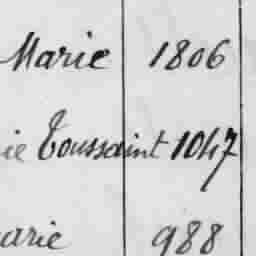 Marie 1806
ie Toussaint 1047
arie 988